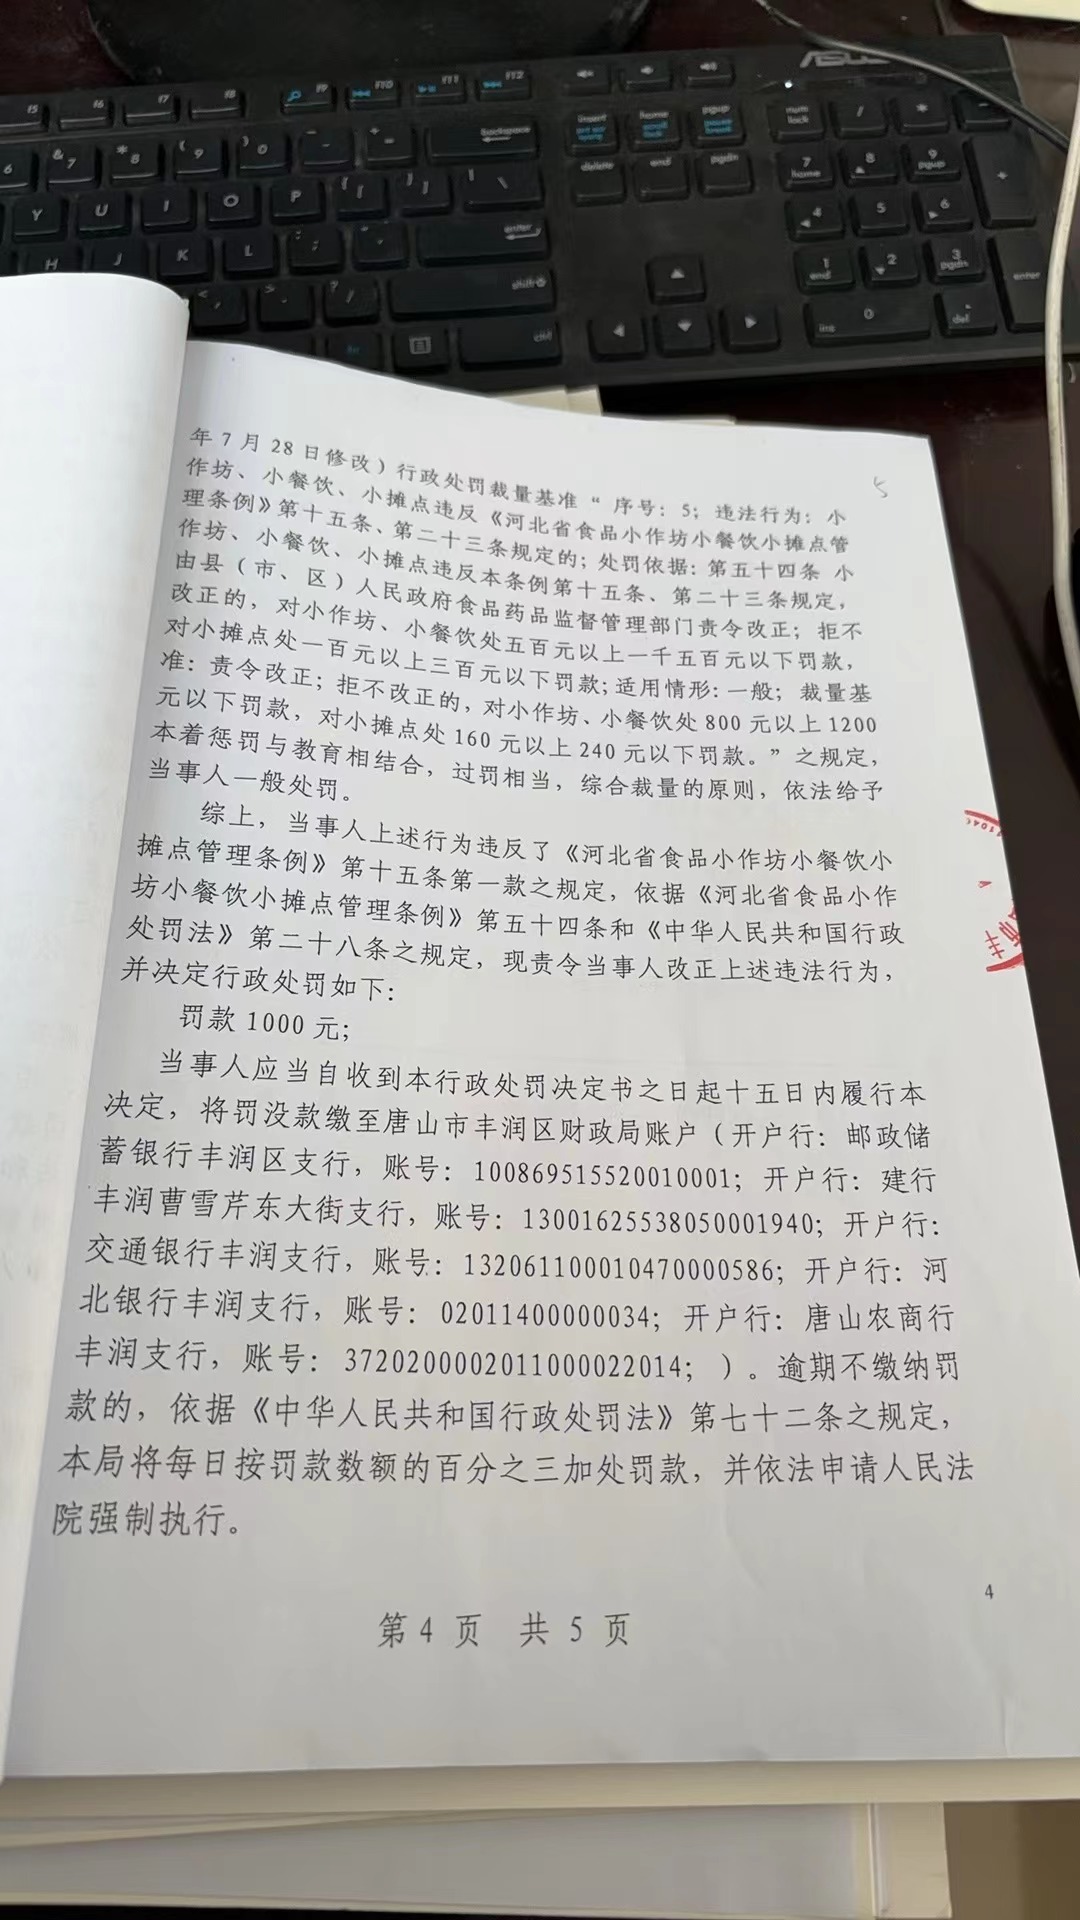 ASUS
f5 f6 f7 f8 F9 F10 F11 F12
insert home pgup num lock / *
6 & 7 * 8 ( 9 ) 0 backspace
delete end pgdn 7 home 8 9 pgup +
Y U I O P enter 4 5 6
H J K L shift 1 end 2 3 pgdn enter
ctrl 0 ins del
5
年7月28日修改）行政处罚裁量基准“ 序号：5；违法行为：小
作坊、小餐饮、小摊点违反《河北省食品小作坊小餐饮小摊点管
理条例》第十五条、第二十三条规定的；处罚依据：第五十四条 小
作坊、小餐饮、小摊点违反本条例第十五条、第二十三条规定，
由县（市、区）人民政府食品药品监督管理部门责令改正；拒不
改正的，对小作坊、小餐饮处五百元以上一千五百元以下罚款，
对小摊点处一百元以上三百元以下罚款；适用情形：一般；裁量基
准：责令改正；拒不改正的，对小作坊、小餐饮处800元以上1200
元以下罚款，对小摊点处160元以上240元以下罚款。”之规定，
本着惩罚与教育相结合，过罚相当，综合裁量的原则，依法给予
当事人一般处罚。
综上，当事人上述行为违反了《河北省食品小作坊小餐饮小
摊点管理条例》第十五条第一款之规定，依据《河北省食品小作
坊小餐饮小摊点管理条例》第五十四条和《中华人民共和国行政
处罚法》第二十八条之规定，现责令当事人改正上述违法行为，
并决定行政处罚如下：
罚款1000元；
当事人应当自收到本行政处罚决定书之日起十五日内履行本
决定，将罚没款缴至唐山市丰润区财政局账户（开户行：邮政储
蓄银行丰润区支行，账号：100869515520010001；开户行：建行
丰润曹雪芹东大街支行，账号：13001625538050001940；开户行：
交通银行丰润支行，账号：132061100010470000586；开户行：河
北银行丰润支行，账号：02011400000034；开户行：唐山农商行
丰润支行，账号：3720200002011000022014；）。逾期不缴纳罚
款的，依据《中华人民共和国行政处罚法》第七十二条之规定，
本局将每日按罚款数额的百分之三加处罚款，并依法申请人民法
院强制执行。
4
第4页 共5页